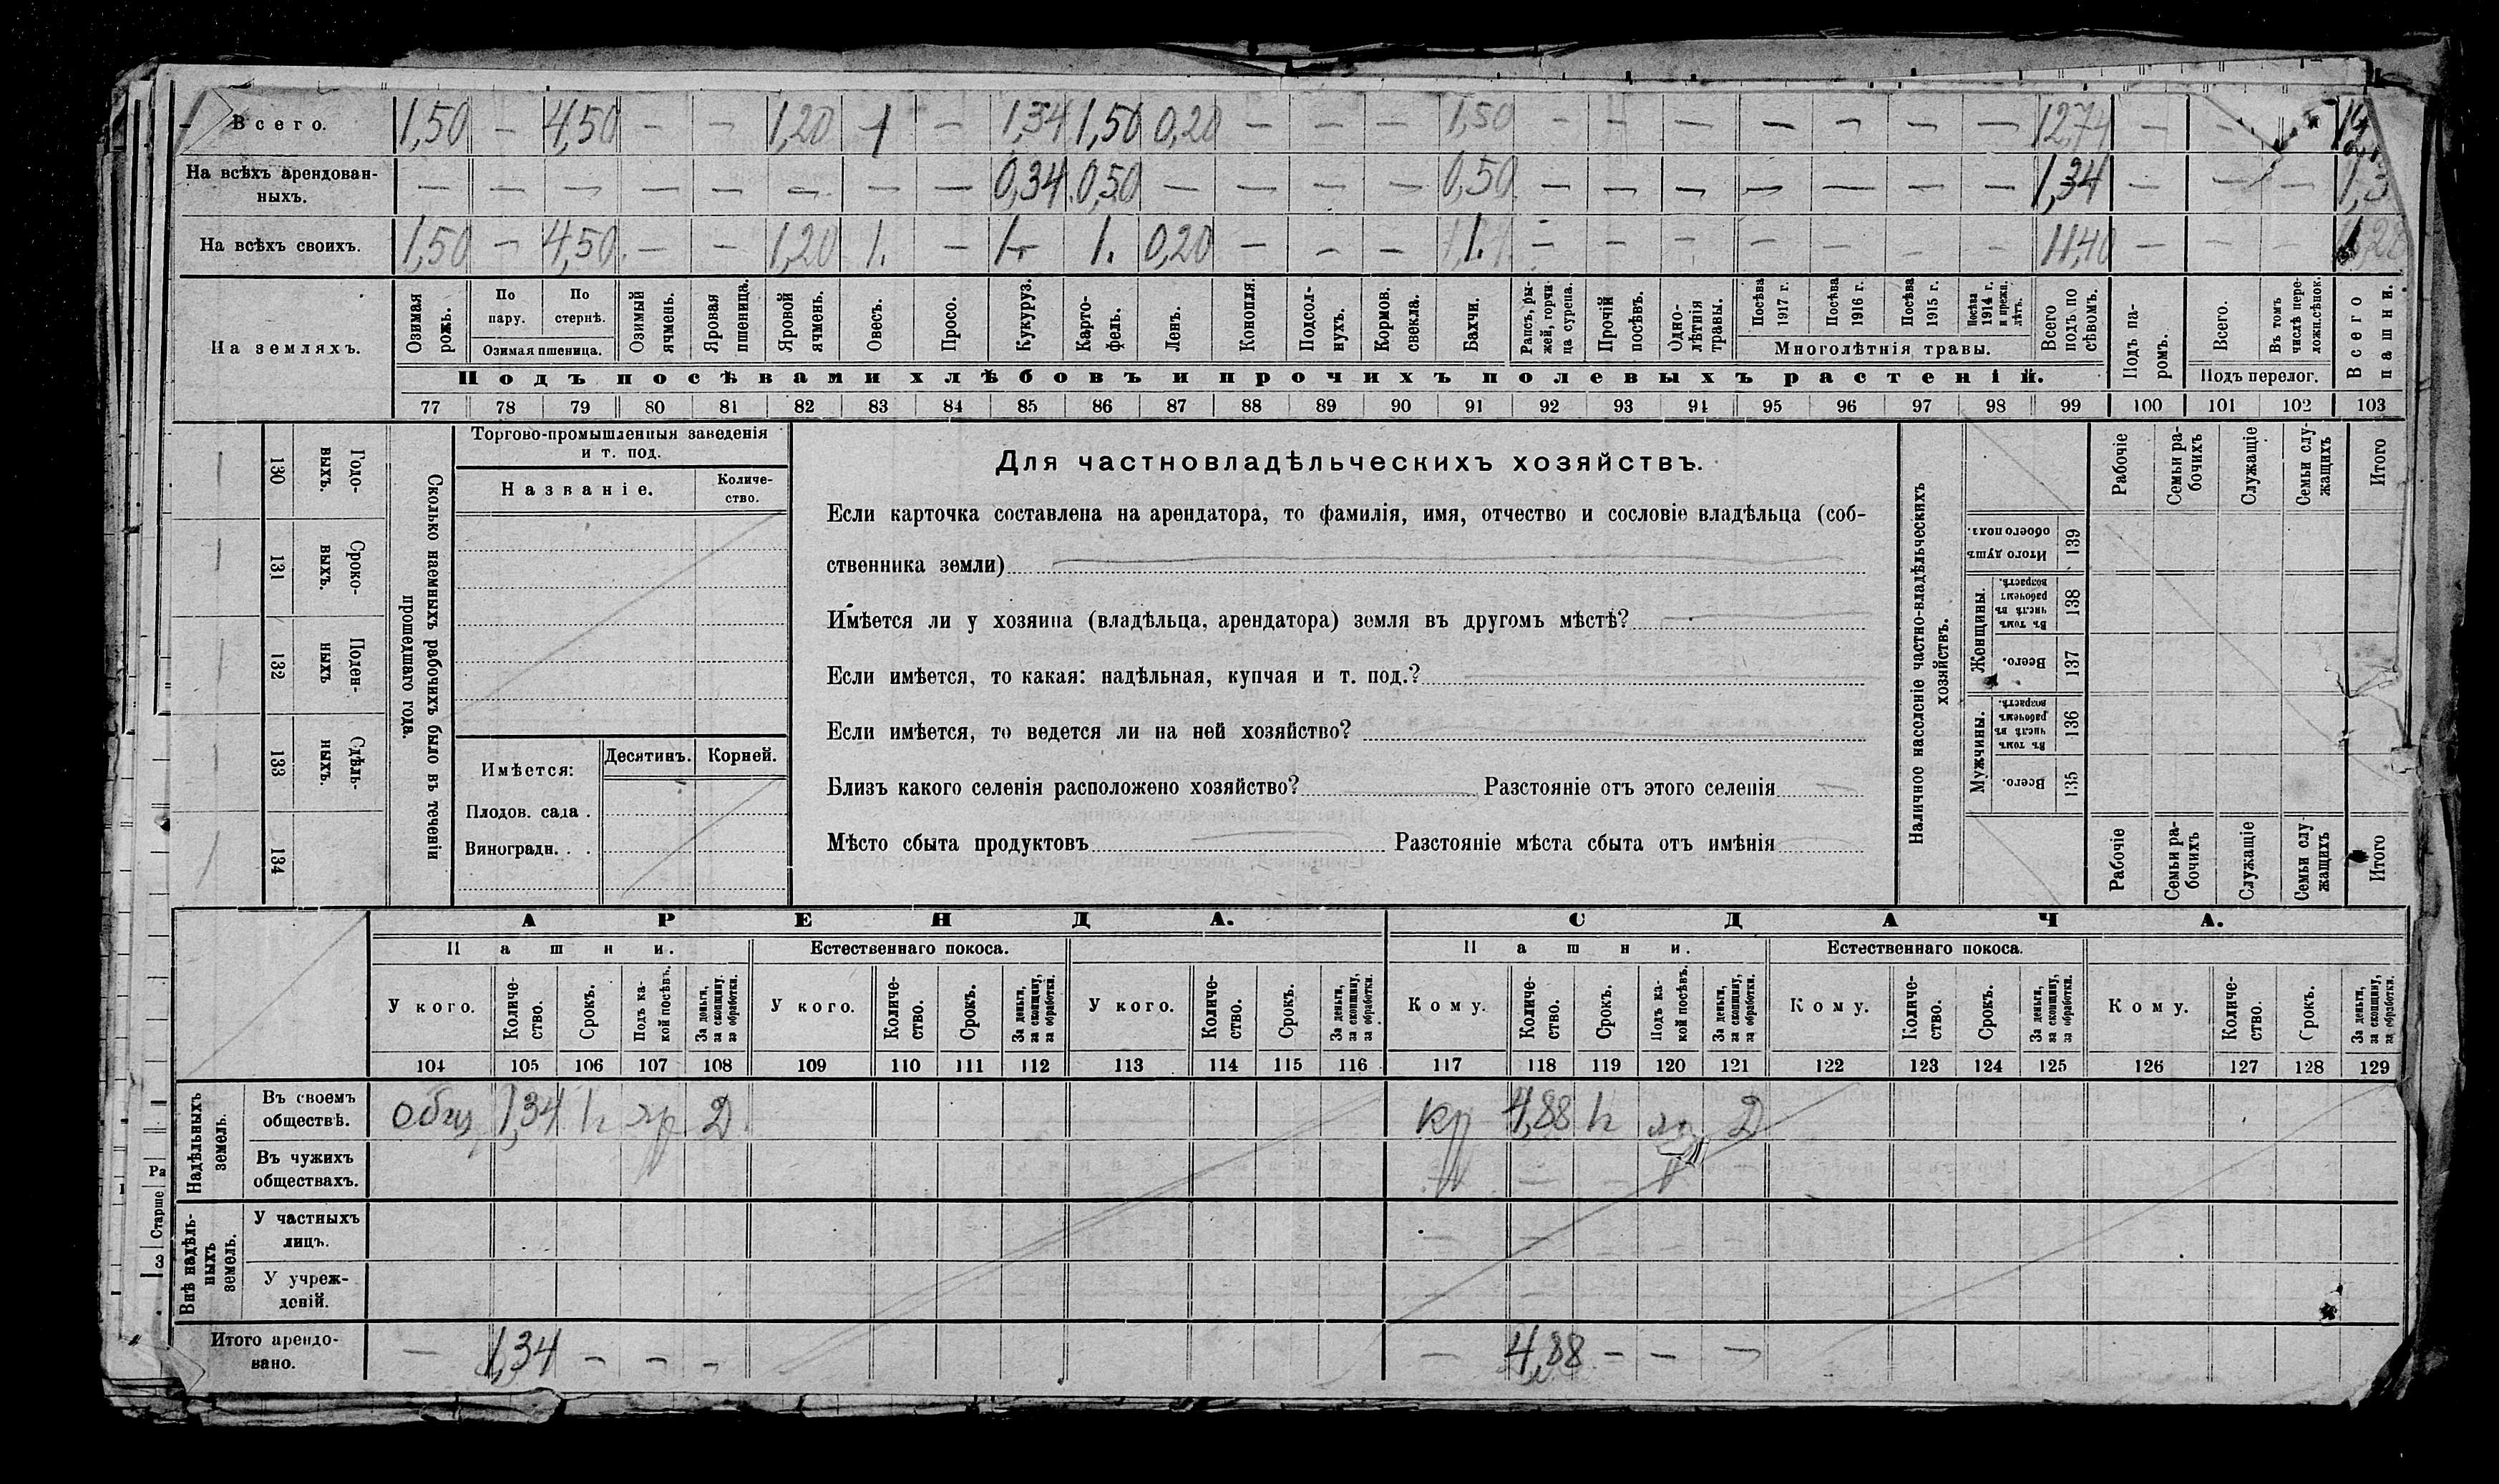 Всего. 1,50 — 4,50 — — 1,20 1 — 1,34 1,50 0,20 — — — 1,50 — — — — — — — 12,74 — —
На всѣхъ арендован-
ныхъ. — — — — — — — — 0,34 0,50 — — — — 0,50 — — — — — — — 1,34 — — —
На всѣхъ своихъ. 1,50 — 4,50 — — 1,20 1. — 1 1. 0,20 — — — 1. — — — — — — — 11,40 — — —
На земляхъ.
Озимая рожь.
По пару.
По стернѣ.
Озимая пшеница.
Озимый ячмень.
Яровая пшеница.
Яровой ячмень.
Овесъ.
Просо.
Кукуруз.
Карто-
фель.
Ленъ.
Конопля.
Подсол-
нухъ.
Кормов. свекла.
Бахчи.
Рапсъ, ры-
жей, горчи-
ца сурепа.
Прочій посѣвъ.
Одно-
лѣтнія травы.
Посѣва 1917 г.
Посѣва 1916 г.
Посѣва 1915 г.
Посѣва 1914 г. и прежн. лѣтъ.
Многолѣтнія травы.
Всего подъ по
сѣвомъ.
Подъ па-
ромъ.
Всего.
Въ томъ числѣ пере-
ложн.сѣнок.
Подъ перелог.
Всего пашни.
Подъ посѣвами хлѣбовъ и прочихъ полевыхъ растеній.
77 78 79 80 81 82 83 84 85 86 87 88 89 90 91 92 93 94 95 96 97 98 99 100 101 102 103
130 Годо-
выхъ.
131 Сроко-
выхъ.
132 Поден-
ныхъ
133 Сдѣль-
ныхъ.
134
Сколько наемныхъ рабочихъ было въ теченіи
прошедшаго года.
Торгово-промышленныя заведенія
и т. под.
Названіе.
Количе-
ство.
Имѣется:
Десятинъ. Корней.
Плодов. сада .
Виноградн. . .
Для частновладѣльческихъ хозяйствъ.
Если карточка составлена на арендатора, то фамилія, имя, отчество и сословіе владѣльца (соб-
ственника земли)
Имѣется ли у хозяина (владѣльца, арендатора) земля въ другомъ мѣстѣ?
Если имѣется, то какая: надѣльная, купчая и т. под.?
Если имѣется, то ведется ли на ней хозяйство?
Близъ какого селенія расположено хозяйство? Разстояніе отъ этого селенія
Мѣсто сбыта продуктовъ Разстояніе мѣста сбыта отъ имѣнія
Наличное населеніе частно-владѣльческихъ
хозяйствъ.
Рабочіе
Семьи ра-
бочихъ
Служащіе
Семьи слу-
жащихъ
Итого
Итого душъ обоего пола. 139
Женщины.
Въ томъ числѣ въ рабочемъ возрастѣ. 138
Всего. 137
Мужчины.
Въ томъ числѣ въ рабочемъ возрастѣ. 136
Всего. 135
Рабочіе
Семьи ра-
бочихъ
Служащіе
Семьи слу-
жащихъ
Итого
АРЕНДА. СДАЧА.
Пашни. Естественнаго покоса. Пашни. Естественнаго покоса.
У кого.
Количе-
ство.
Срокъ.
Подъ ка-
кой посѣвъ.
За деньги, за скопщину, за обработки.
У кого.
Количе-
ство.
Срокъ.
За деньги, за скопщину, за обработки.
У кого.
Количе-
ство.
Срокъ.
За деньги, за скопщину, за обработки.
Кому.
Количе-
ство.
Срокъ.
Подъ ка-
кой посѣвъ.
За деньги, за скопщину, за обработки.
Кому.
Количе-
ство.
Срокъ.
За деньги, за скопщину, за обработки.
Кому.
Количе-
ство.
Срокъ.
За деньги, за скопщину, за обработки.
104 105 106 107 108 109 110 111 112 113 114 115 116 117 118 119 120 121 122 123 124 125 126 127 128 129
Надѣльныхъ
земель.
Въ своемъ
обществѣ. общ 1,34 яр Д кр 4,88 Д
Въ чужихъ
обществахъ.
Внѣ надѣль-
ныхъ
земель.
У частныхъ
лицъ.
У учреж-
деній.
Итого арендо-
вано. — 1,34 — — — — 4,88 — — —
Ра
Старше
3